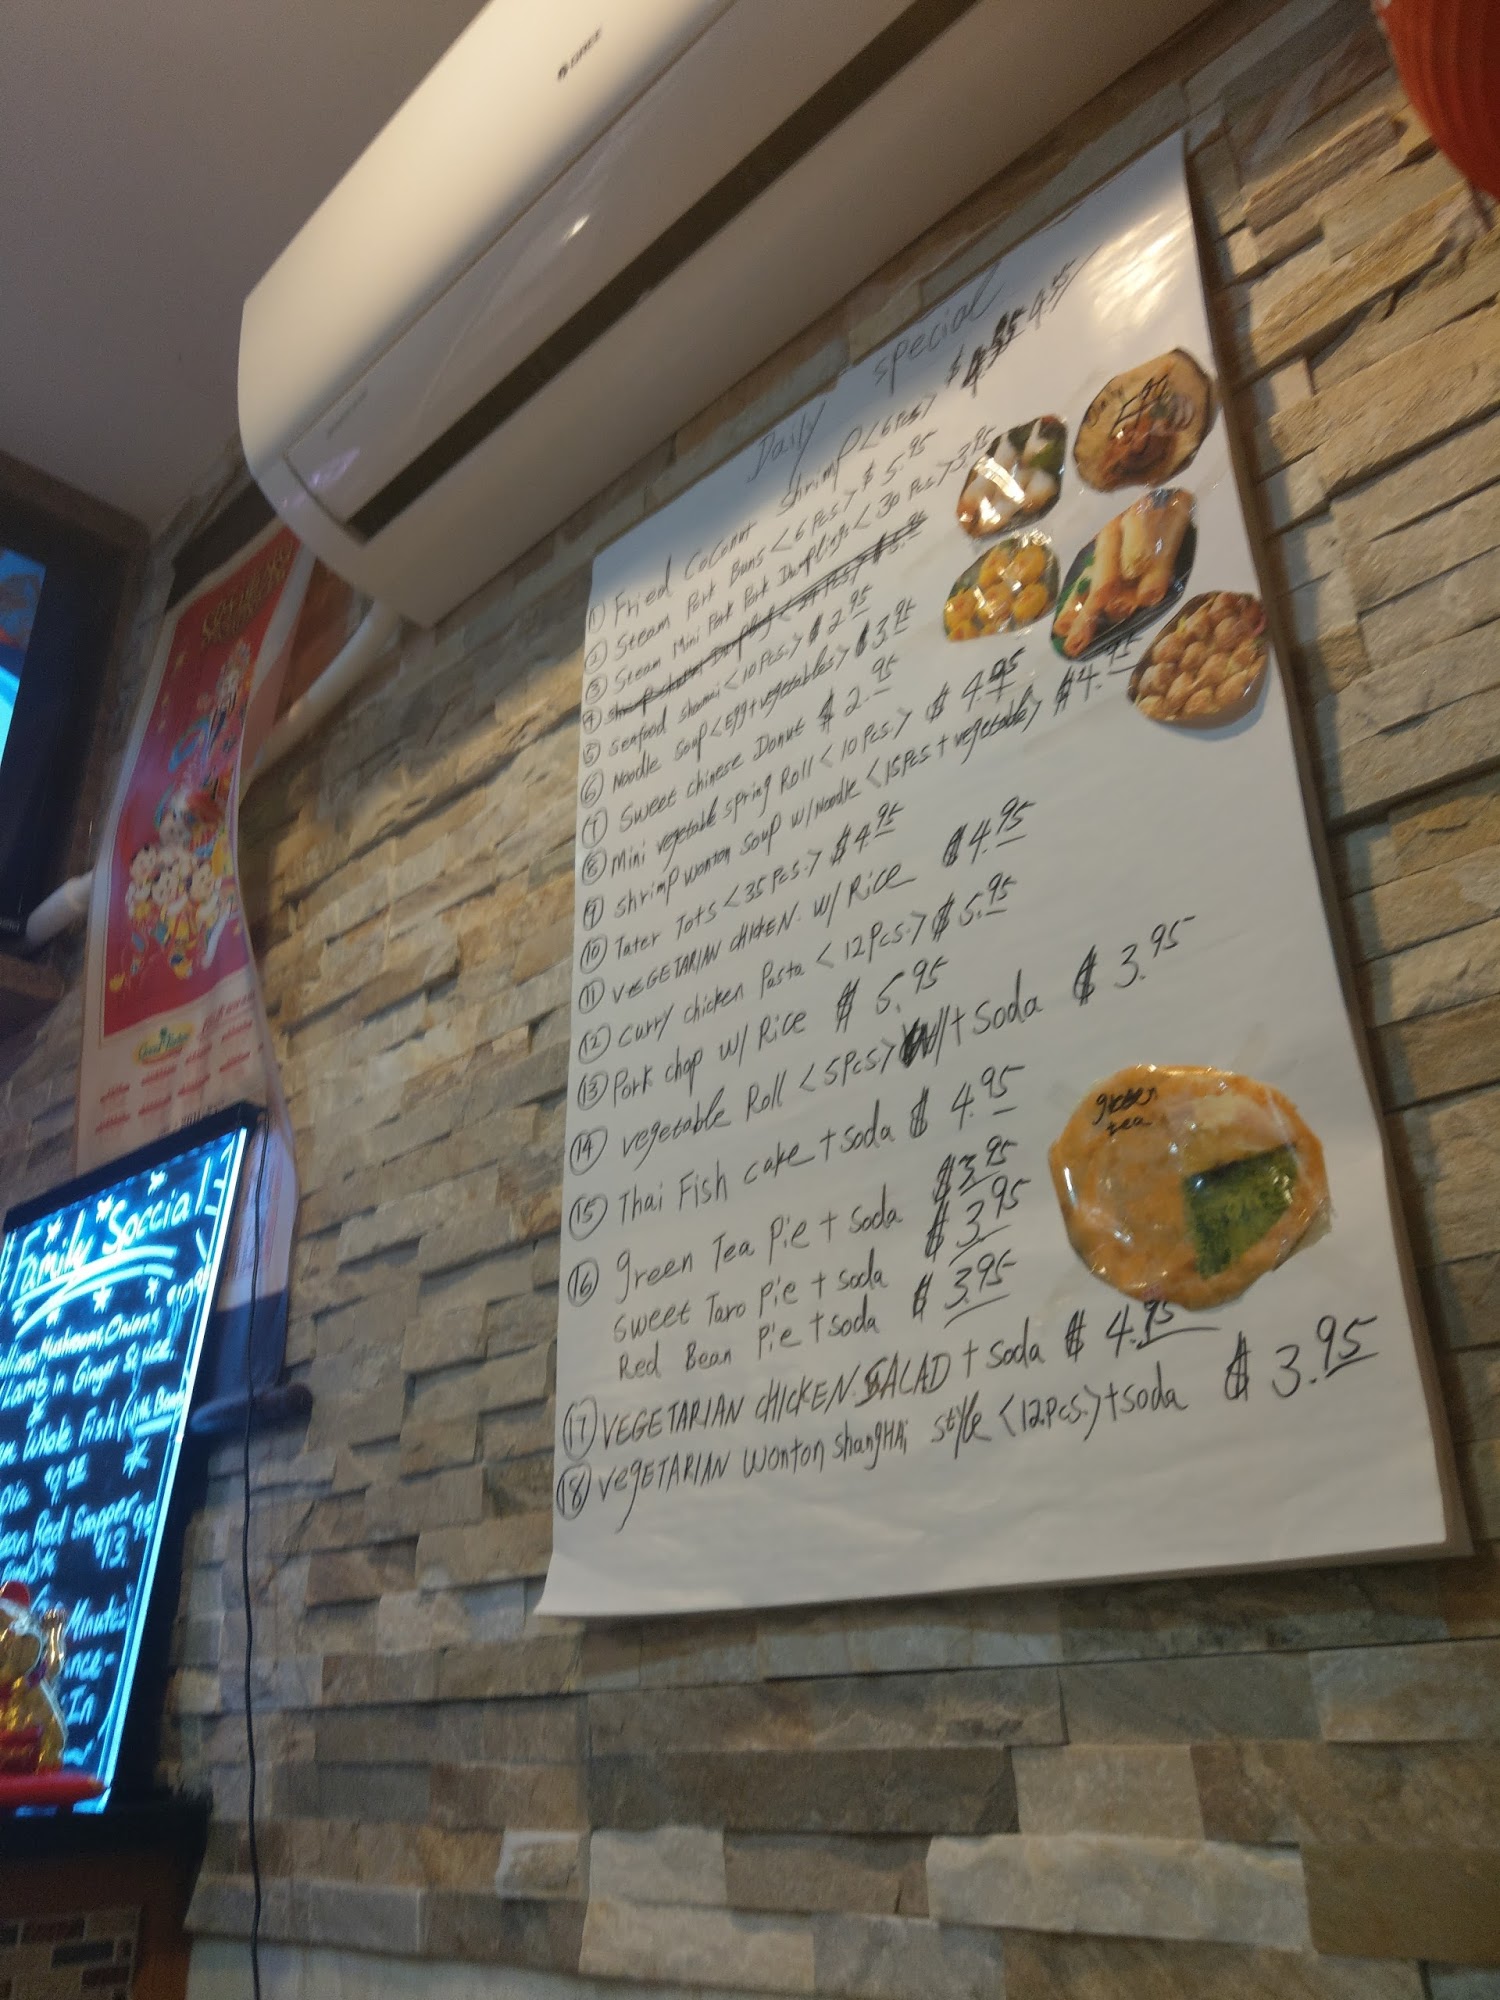 GREE
Daily special
① Fried Coconut Shrimp <6 Pcs> $ 4.95
② Steam Pork Buns <6 Pcs.> $ 5.95
③ Steam Mini Pork Pork Dumplings <30 Pcs.> 3.95
④
⑤ Seafood shaomai <10 Pcs.> $ 2.95
⑥ Noodle Soup <Egg+vegetables> $ 3.95
⑦ Sweet chinese Donut $ 2.95
⑧ Mini vegetable Spring Roll <10 Pcs.> $ 4.95
⑨ shrimp wonton soup w/Noodle <15Pcs + vegetable> $4.95
⑩ Tater Tots <35 Pcs.> $ 4.95
⑪ VEGETARIAN CHICKEN. W/ Rice $4.95
⑫ Curry chicken Pasta <12 Pcs.> $ 5.95
⑬ Pork chop w/ Rice $ 5.95
⑭ vegetable Roll <5Pcs> W/+ Soda $ 3.95
⑮ Thai Fish cake + Soda $ 4.95
⑯ green Tea Pie + Soda $3.95
Sweet Taro Pie + Soda $ 3.95
Red Bean Pie + Soda $ 3.95
⑰ VEGETARIAN CHICKEN. SALAD + Soda $ 4.95
⑱ VegETARIAN Wonton ShangHAi Style <12.Pcs.>+Soda $ 3.95
green
tea
Family Soccial
Mushrooms, Onions
Lamb in Ginger Sauce.
Whole Fish
Red Snapper
$13.95
Minutes
In